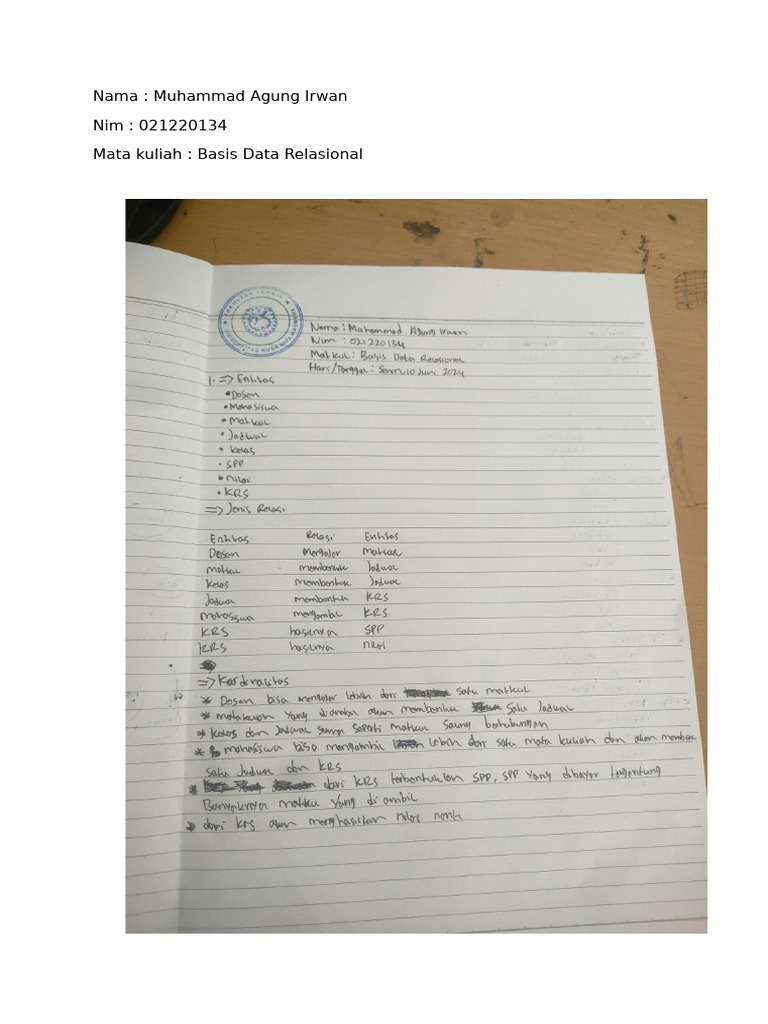 Nama : Muhammad Agung Irwan
Nim : 021220134
Mata kuliah : Basis Data Relasional
FAKULTAS TEKNIK
UNIVERSITAS NUSA NIPA
Nama : Muhammad Agung Irwan
Nim : 021220134
Matkul : Basis Data Relasional
Hari/Tanggal : Senin, 10 Juni 2024
1. => Entitas
• Dosen
• Mahasiswa
• Matkul
• Jadwal
• Kelas
• SPP
• nilai
• KRS
=> Jenis Relasi
Entitas Relasi Entitas
Dosen Mengajar Matkul
Matkul membentuk Jadwal
Kelas membentuk Jadwal
Jadwal membentuk KRS
Mahasiswa mengambil KRS
KRS hasilnya SPP
KRS hasilnya nilai
=> Kardinalitas
* Dosen bisa mengajar lebih dari satu matkul
* matakuliah yang diambil akan membentuk satu Jadwal
* Kelas dan Jadwal sama seperti matkul saling berhubungan
* mahasiswa bisa mengambil lebih dari satu mata kuliah dan akan membentuk
satu Jadwal dan KRS
* dari KRS terbentuklah SPP, SPP yang dibayar tergantung
Banyaknya matkul yang di ambil
* dari KRS akan menghasilkan nilai